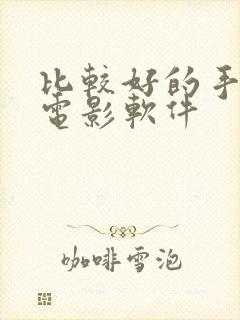 比較好的手
電影軟件
咖啡雪泡